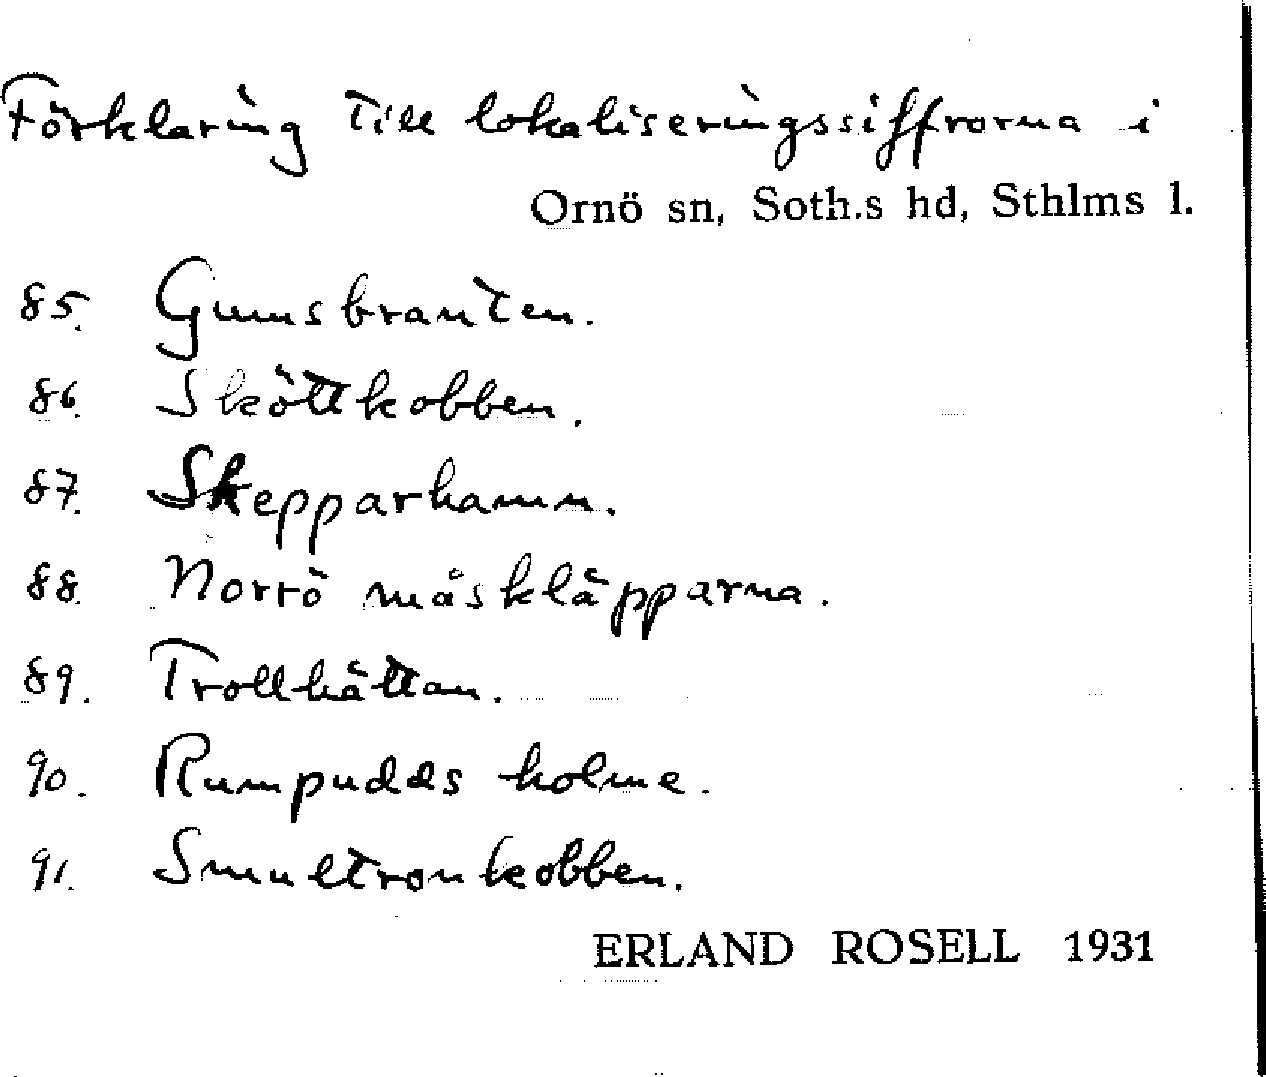 Förklaring till lokaliseringssiffrorna i
Ornö sn, Soth.s hd, Sthlms l.
85. Gumsbranten.
86. Sköttkobben.
87. Skepparhamn.
88. Norrö måskläpparna.
89. Trollhättan.
90. Rumpudds holme.
91. Smultronkobben.
ERLAND ROSELL 1931